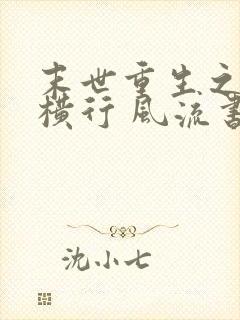 末世重生之
横行风流书
沈小七